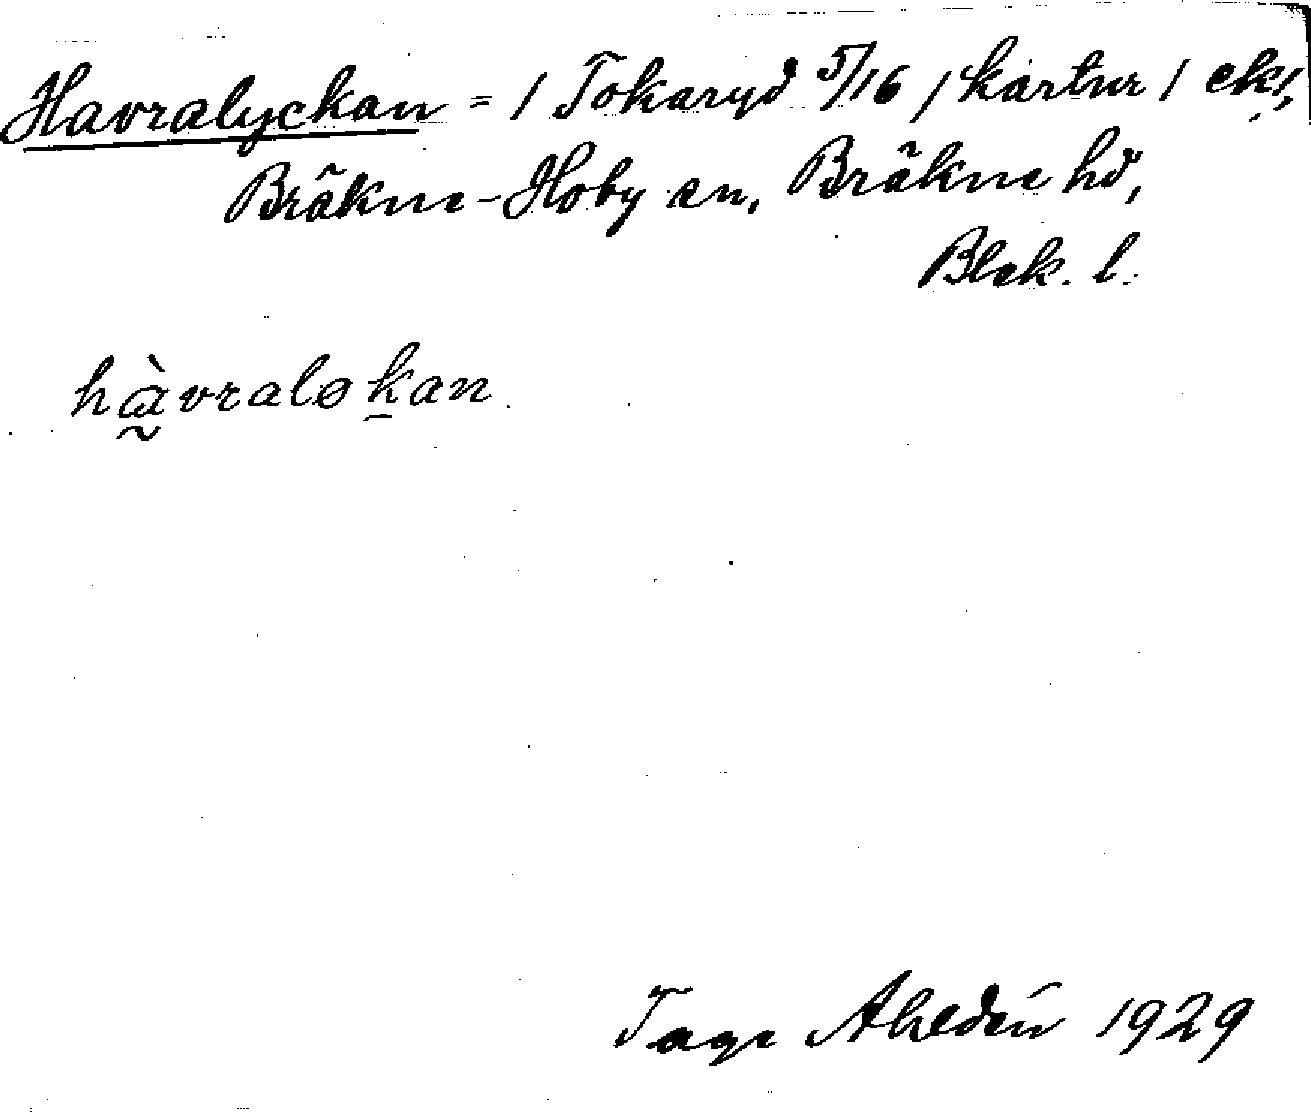 Havralyckan = / Tokaryd 5/16 / kartur / ek!,
Bräkne-Hoby sn, Bräkne hd,
Blek. l.
hàvraløkan
Tage Ahldén 1929